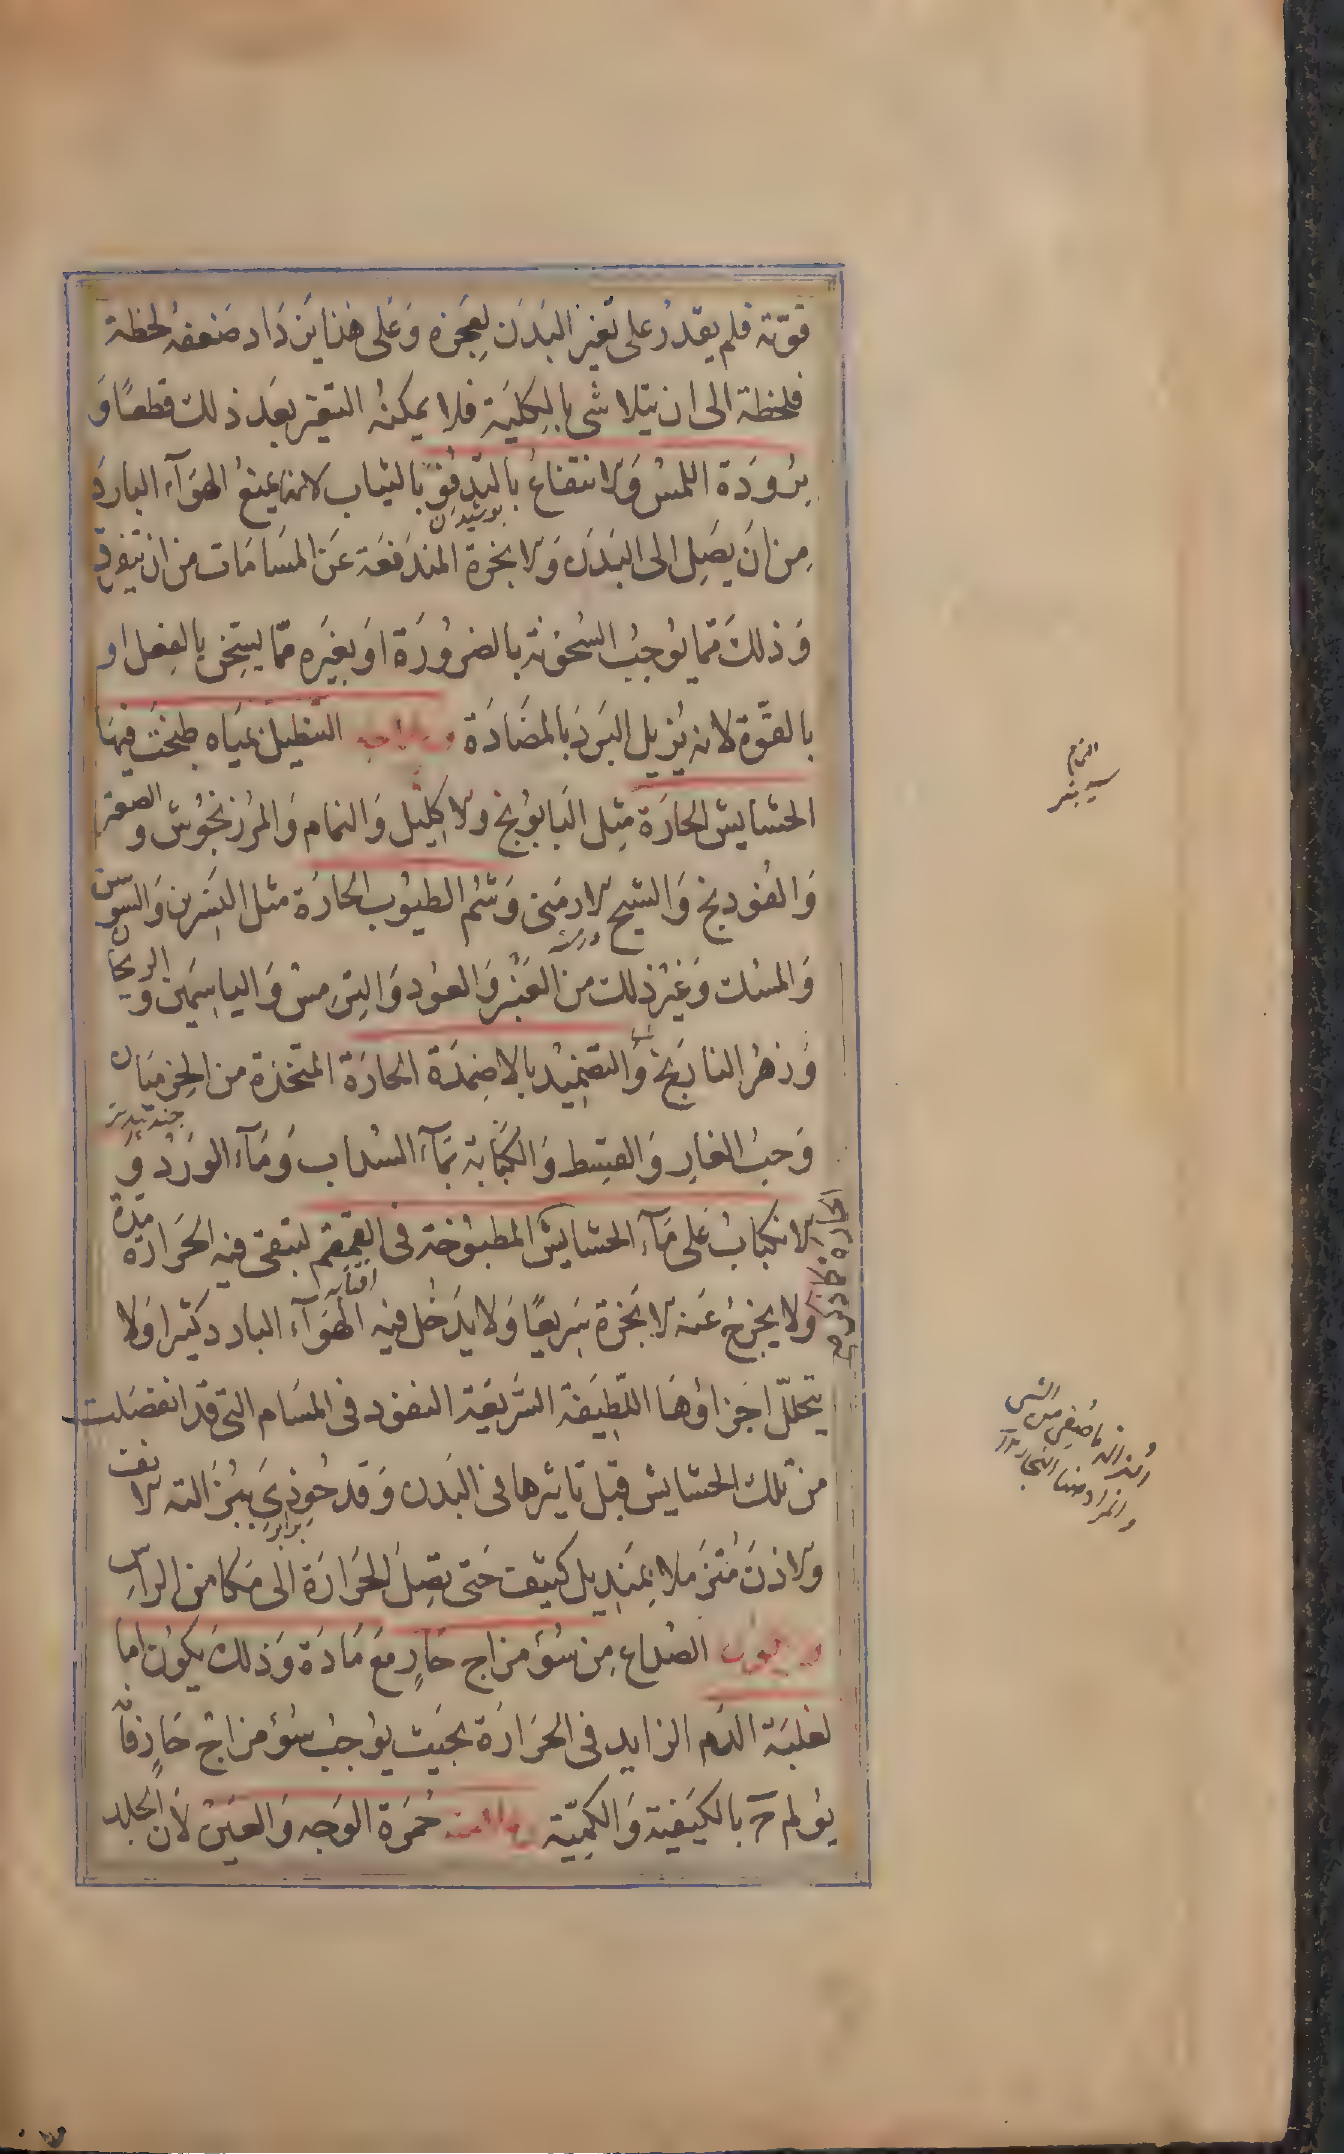 قوّته فلم يقدر على تغير البَدَن لِعَجَزه وَعَلى هذا يَزدَاد ضَعفهُ لحظة
فلحظة الى ان يتلاشى بالكليَة فلا يمكنهُ التغير بعَد ذلك قطعًا وَ
برُودَة اللمسُ وَالانتفاعُ بالتدفُّؤ بالثياب لانه يمنعُ الهوَآء البارِدَ
پوشيدن
مِن انَ يصَل الى البَدَن وَالابخرة المندَفعَة عَن المسَامَات من ان يتفرق
وَذلكَ ممّا يوُجبُ السُّخونَة بالضرورَة اوَ بغيَره ممّا يسَخن بالفِعل او
بالقوّة لانه يُزيل البَرَد بالمضَادَة وعلاجه التنطيل بميَاه طبخت فيهَا
الحشايش الحارَة مِثل البَابوُنج والاكليل وَالنمام وَالمرُزنجوُش و الصعتر
وَالفُودنج وَالشيح الارمَنى وَشمُ الطيوُب الحَارَة مثل النسَرين وَالسوسن
وَالمسُك وَغيرُ ذلك من العَنبُر وَالعوُد وَالنِرجس وَاليَاسِمَين و الريحان
وَزهرُ النارَنج وَالتضميُد بالاضِمدَة الحارَة المتخذة من الخرميَان
جندبيدستر
وَحبُ الغارِ وَالقسِط وَالكبَابة بمَآء السُداب وَمَآء الورَدُ وَ
الانكبابُ عَلى مَآء الحشايش المطبوُخة فى القمقم لتبقى فيه الحَرارة مدّة
ولا يخرجُ عَنه الابَخرة سَريعًا وَلا يدَخُل فيه الهَوَآء البارد كثيرا وَلا
يتحللّ اجَزاؤهَا اللّطيَفة السَّريَعة النفود فى المسَام التى قدَ انفصَلت
من تلك الحشايش قبل تاثيرها فى البَدن وَقد حُوذِىَ ببُزَالته الانف
برابر
وَالاذنَ مُتزَملا بمنديل كثيف حَتى تصِلَ الحَرارَة الى مَكامن الراس
الصُداع مِن سُوَء مزاج حَارٍ مَعَ مَادَة وَذلكَ يكوُن اما
لغلبَة الدَم الزايد فى الحَرارَة بحَيث يوُجبُ سُوَء مزاج حَارٍ فانّه
يؤلم ح بالكيَفية وَالكميّة وعلامته حُمَرة الوَجه وَالعيَنُ لاَن الجلد